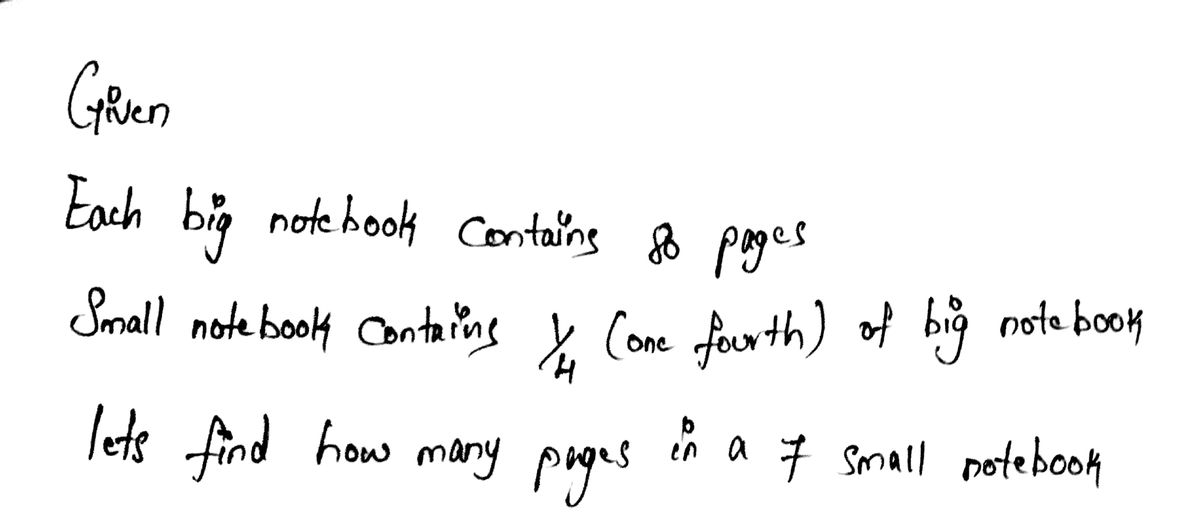 Given
Each big notebook contains 80 pages
Small notebook contains 1/4 (one fourth) of big notebook
lets find how many pages in a 7 small notebook